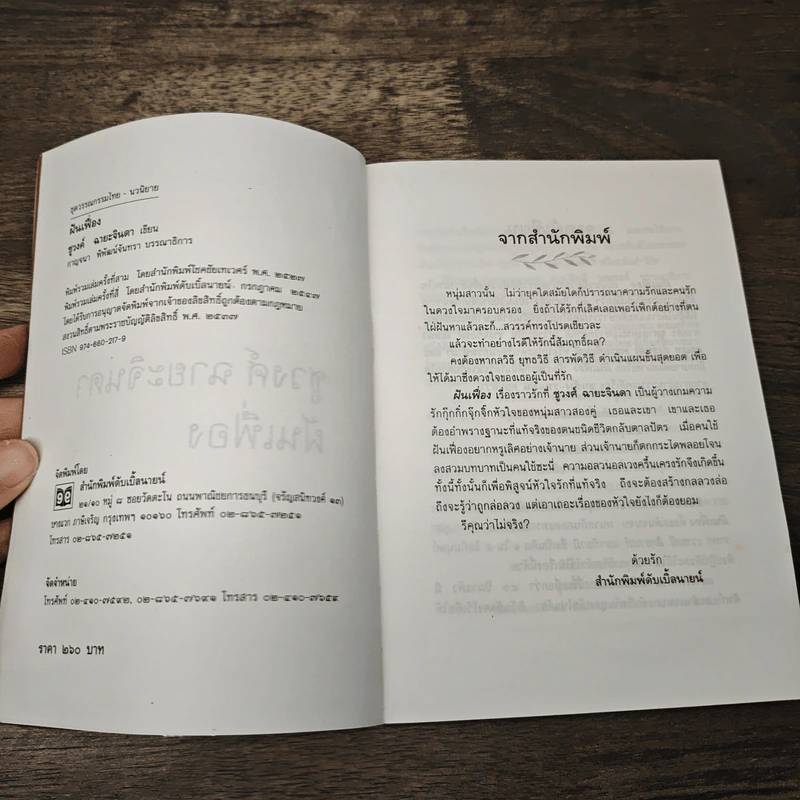 ชุดวรรณกรรมไทย - นวนิยาย
ฝันเฟื่อง
ชูวงศ์ ฉายะจินดา เขียน
กาญจนา พิพัฒน์จันทรา บรรณาธิการ
พิมพ์รวมเล่มครั้งที่สาม โดยสำนักพิมพ์โชคชัยเทเวศร์ พ.ศ. ๒๕๒๗
พิมพ์รวมเล่มครั้งที่สี่ โดยสำนักพิมพ์ดับเบิ้ลนายน์ กรกฎาคม ๒๕๔๗
โดยได้รับการอนุญาตจัดพิมพ์จากเจ้าของลิขสิทธิ์ถูกต้องตามกฎหมาย
สงวนสิทธิ์ตามพระราชบัญญัติลิขสิทธิ์ พ.ศ. ๒๕๓๗
ISBN 974-660-217-9
จัดพิมพ์โดย
สำนักพิมพ์ดับเบิ้ลนายน์
๒๑/๑๐ หมู่ ๘ ซอยวัดตะโน ถนนพาณิชยการธนบุรี (จรัญสนิทวงศ์ ๑๓)
บางแวก ภาษีเจริญ กรุงเทพฯ ๑๐๑๖๐ โทรศัพท์ ๐๒-๘๖๕-๗๒๕๑
โทรสาร ๐๒-๘๖๕-๗๒๕๑
จัดจำหน่าย
โทรศัพท์ ๐๒-๔๑๐-๗๕๙๒, ๐๒-๘๖๕-๗๖๙๑ โทรสาร ๐๒-๔๑๐-๗๖๕๔
ราคา ๒๖๐ บาท
จากสำนักพิมพ์
หนุ่มสาวนั้น ไม่ว่ายุคใดสมัยใดก็ปรารถนาความรักและคนรัก
ในดวงใจมาครอบครอง ยิ่งถ้าได้รักที่เลิศเลอเพอร์เฟ็กต์อย่างที่ตน
ใฝ่ฝันหาแล้วละก็...สวรรค์ทรงโปรดเชียวละ
แล้วจะทำอย่างไรดีให้รักนี้สัมฤทธิ์ผล?
คงต้องหากลวิธี ยุทธวิธี สารพัดวิธี ดำเนินแผนขั้นสุดยอด เพื่อ
ให้ได้มาซึ่งดวงใจของเธอผู้เป็นที่รัก
ฝันเฟื่อง เรื่องราวรักที่ ชูวงศ์ ฉายะจินดา เป็นผู้วางเกมความ
รักกุ๊กกิ๊กจุ๊กจิ๊กหัวใจของหนุ่มสาวสองคู่ เธอและเขา เขาและเธอ
ต้องอำพรางฐานะที่แท้จริงของตนชนิดชีวิตกลับตาลปัตร เมื่อคนใช้
ฝันเฟื่องอยากหรูเลิศอย่างเจ้านาย ส่วนเจ้านายก็ตกกระไดพลอยโจน
ลงสวมบทบาทเป็นคนใช้ซะนี่ ความอลวนอลเวงครื้นเครงรักจึงเกิดขึ้น
ทั้งนี้ทั้งนั้นก็เพื่อพิสูจน์หัวใจรักที่แท้จริง ถึงจะต้องสร้างกลลวงล่อ
ถึงจะรู้ว่าถูกล่อลวง แต่เอาเถอะเรื่องของหัวใจยังไงก็ต้องยอม
รึคุณว่าไม่จริง?
ด้วยรัก
สำนักพิมพ์ดับเบิ้ลนายน์